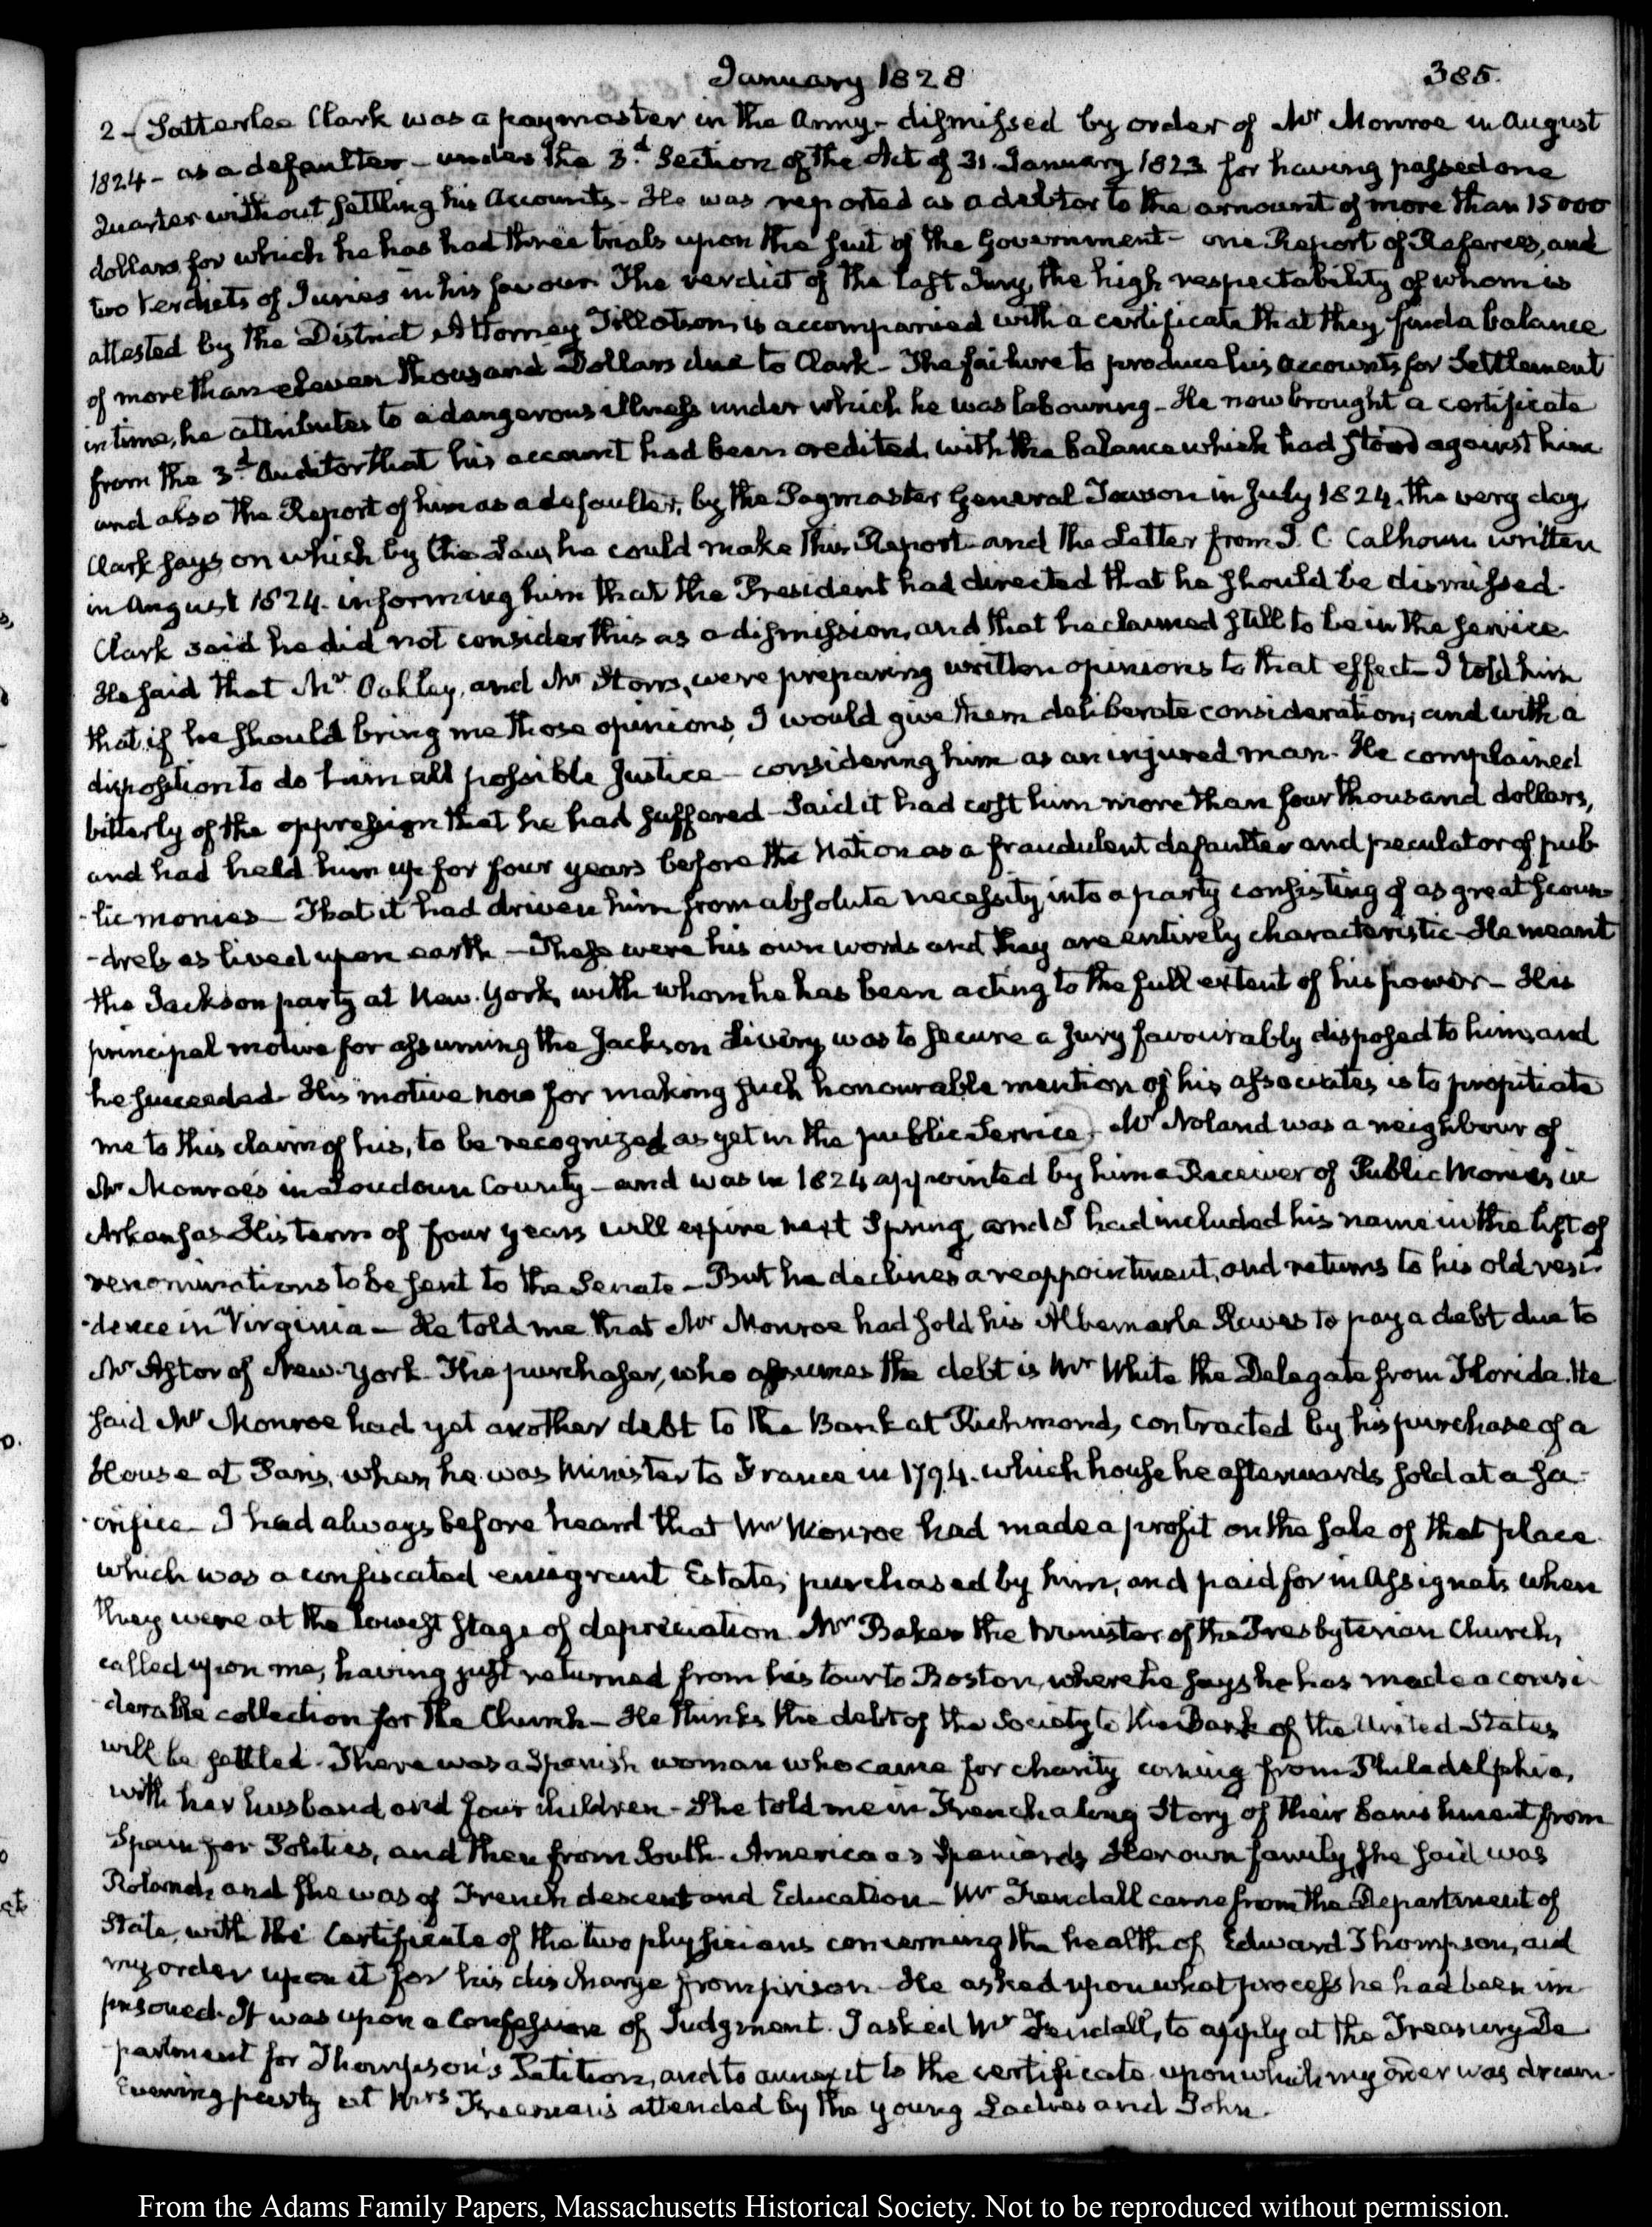 January 1828
385.
2 - (Satterlee Clark was a paymaster in the Army - dismissed by order of Mr Monroe in August
1824 - as a defaulter - under the 3d Section of the Act of 31. January 1823 for having passed one
Quarter without settling his Accounts - He was reported as a debtor to the amount of more than 15000
dollars for which he has had three trials upon the suit of the Government - one Report of Referees, and
two Verdicts of Juries in his favour. The verdict of the last Jury, the high respectability of whom is
attested by the District Attorney Tillotson, is accompanied with a certificate that they find a balance
of more than eleven thousand Dollars due to Clark - The failure to produce his accounts for Settlement
in time, he attributes to a dangerous illness under which he was labouring - He now brought a certificate
from the 3d Auditor that his account had been credited, with the balance which had stood against him
and also the Report of him as a defaulter, by the Paymaster General Towson in July 1824, the very day,
Clark says, on which by the Law, he could make this Report and the Letter from J. C. Calhoun written
in August 1824. informing him that the President had directed that he should be dismissed.
Clark said he did not consider this as a dismission, and that he claimed still to be in the service.
He said that Mr Oakley, and Mr Storrs, were preparing written opinions to that effect - I told him
that if he should bring me those opinions, I would give them deliberate consideration; and with a
disposition to do him all possible Justice - considering him as an injured man. He complained
bitterly of the oppression that he had suffered - Said it had cost him more than four thousand dollars,
and had held him up for four years before the Nation as a fraudulent defaulter and peculator of pub
-lic monies - That it had driven him from absolute necessity, into a party consisting of as great scoun-
-drels as lived upon earth - These were his own words and they are entirely characteristic - He meant
the Jackson party at New-York, with whom he has been acting to the full extent of his power - His
principal motive for assuming the Jackson Livery, was to secure a Jury favourably disposed to him, and
he succeeded - His motive now for making such honourable mention of his associates is to propitiate
me to this claim of his, to be recognized as yet in the public Service) - Mr Noland was a neighbour of
Mr Monroe's in Loudoun County - and was in 1824 appointed by him a Receiver of Public Monies in
Arkansas - His term of four years will expire next Spring, and I had included his name in the list of
renominations to be sent to the Senate - But he declines a reappointment, and returns to his old resi
-dence in Virginia - He told me that Mr Monroe had sold his Albemarle Slaves to pay a debt due to
Mr Astor of New-York - The purchaser, who assumes the debt is Mr White the Delegate from Florida. He
said Mr Monroe had yet another debt to the Bank at Richmond, contracted by his purchase of a
House at Paris, when he was Minister to France in 1794. which house he afterwards sold at a sa-
-crifice - I had always before heard that Mr Monroe had made a profit on the sale of that place
which was a confiscated emigrant Estate, purchased by him, and paid for in Assignats when
they were at the lowest stage of depreciation. Mr Baker the Minister of the Presbyterian Church,
called upon me, having just returned from his tour to Boston, where he says he has made a consi
-derable collection for the Church - He thinks the debt of the Society to the Bank of the United States
will be settled - There was a Spanish woman who came for charity coming from Philadelphia,
with her husband and four children - She told me in French a long Story of their banishment from
Spain for Politics, and then from South-America as Spaniards. Her own family, she said was
Roland, and she was of French descent and Education - Mr Frendall came from the Department of
State, with the Certificate of the two physicians concerning the health of Edward Thompson, and
my order upon it for his discharge from prison - He asked upon what process he had been im
prisoned - It was upon a Confession of Judgment. I asked Mr Fendall, to apply at the Treasury De
-partment for Thompson's Petition, and to annex it to the certificate upon which my order was drawn.
Evening party at Mrs Freeman's attended by the young Ladies and John.
From the Adams Family Papers, Massachusetts Historical Society. Not to be reproduced without permission.